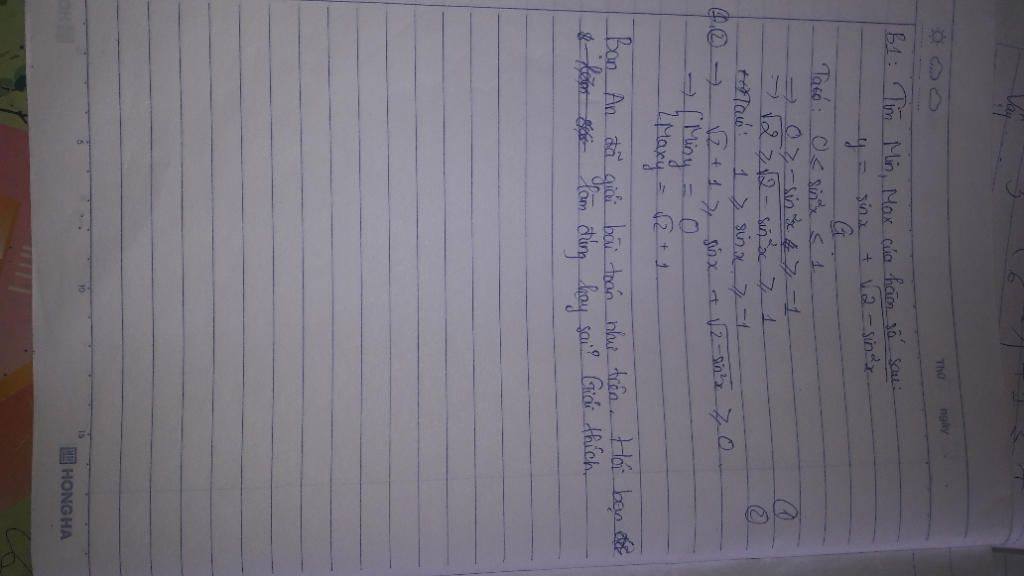 Thứ
ngày
B1: Tìm Min, Max của hàm số sau:
y = sinx + √2 - sin²x
G
Ta có: 0 ≤ sin²x ≤ 1
→ 0 ≥ -sin²x ≥ -1
→ √2 ≥ √2 - sin²x ≥ 1 ①
Ta có: 1 ≥ sinx ≥ -1 ②
①② → √2 + 1 ≥ sinx + √2 - sin²x ≥ 0
→ { Min y = 0
Max y = √2 + 1
Bạn An đã giải bài toán như trên. Hỏi bạn
làm đúng hay sai? Giải thích
5
10
15
HONG HA